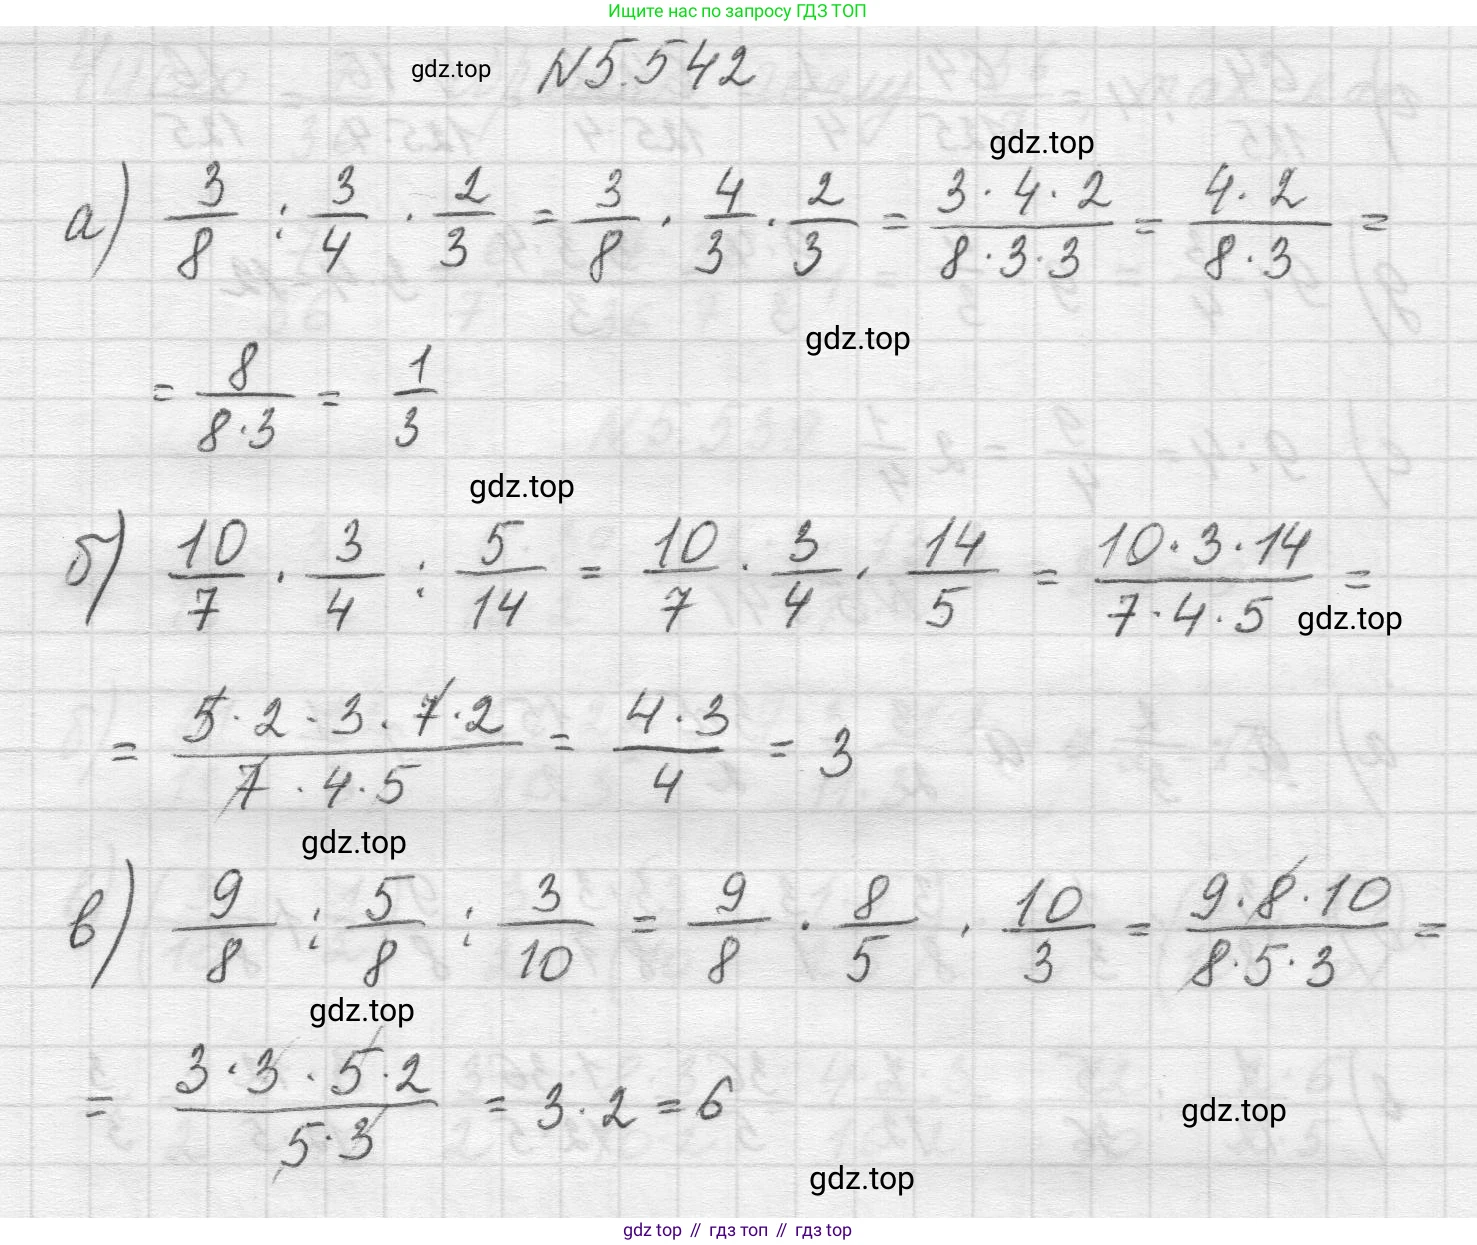 Ищите нас по запросу ГДЗ ТОП
gdz.top N5.542
gdz.top
а) 3/8 : 3/4 · 2/3 = 3/8 · 4/3 · 2/3 = (3·4·2)/(8·3·3) = (4·2)/(8·3) =
gdz.top
= 8/(8·3) = 1/3
gdz.top
б) 10/7 · 3/4 : 5/14 = 10/7 · 3/4 · 14/5 = (10·3·14)/(7·4·5) =
gdz.top
= (5·2·3·7·2)/(7·4·5) = (4·3)/4 = 3
gdz.top
в) 9/8 : 5/8 : 3/10 = 9/8 · 8/5 · 10/3 = (9·8·10)/(8·5·3) =
gdz.top
= (3·3·5·2)/(5·3) = 3·2 = 6
gdz.top
gdz.top
gdz top // гдз топ // гдз top